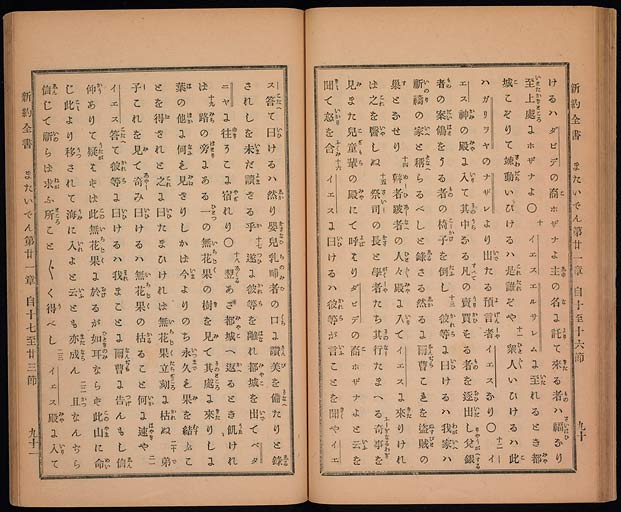 新約全書　またいでん第廿一章　自十至十六節　九十
けるハダビデの裔ホザナよ主の名に託て來る者ハ福なり
至上處にホザナよ〇 十 イエスエルサレムに至れるとき都
城こぞりて竦動いひけるハ是誰ぞや 十一 衆人いひけるハ此
ハガリラヤのナザレより出たる預言者イエスなり〇 十二 イ
エス神の殿に入て其中なる凡の賣買する者を逐出し兌銀
者の案鴿をうる者の椅子を倒し 十三 彼等に曰けるハ我家ハ
祈禱の家と稱らるべしと錄さる然るに爾曹これを盜賊の
巢となせり 十四 瞽者跛者の人々殿に入てイエスに來りけれ
は之を醫しぬ 十五 祭司の長と學者たち其行たまへる奇事を
見また兒童輩の殿にて呼はりダビデの裔ホザナよと云を
聞て怒を含 十六 イエスに曰けるハ彼等が言ことを聞やイエ
ス答て曰けるハ然り嬰兒乳哺者の口に讚美を備たりと錄
されしを未だ讀ざる乎 十七 遂に彼等を離れ都城を出てベタ
ニヤに往うこに宿れり〇 十八 翌あさ都城へ返るとき飢けれ
は 十九 路の旁にある一の無花果の樹を見て其處に來りしに
葉の他に何も見ざりしかは今よりのち永く果を結ぶこ
とを得されと之にいひたまひければ無花果立刻に枯ぬ 二十 弟
子これを見て奇み曰けるハ無花果の枯ること何に速や 二一
イエス答て彼等に曰けるハ我まことに爾曹に告んもし信
仰ありて疑はずは此無花果に於るが如耳ならず此山に命
じ此より移されて海に入よと云とも亦成ん 二二 且なんぢら
信じて祈らは求ふ所ことごとく得べし 二三 イエス殿に入て
新約全書　またいでん第廿一章　自十七至廿三節　九十一